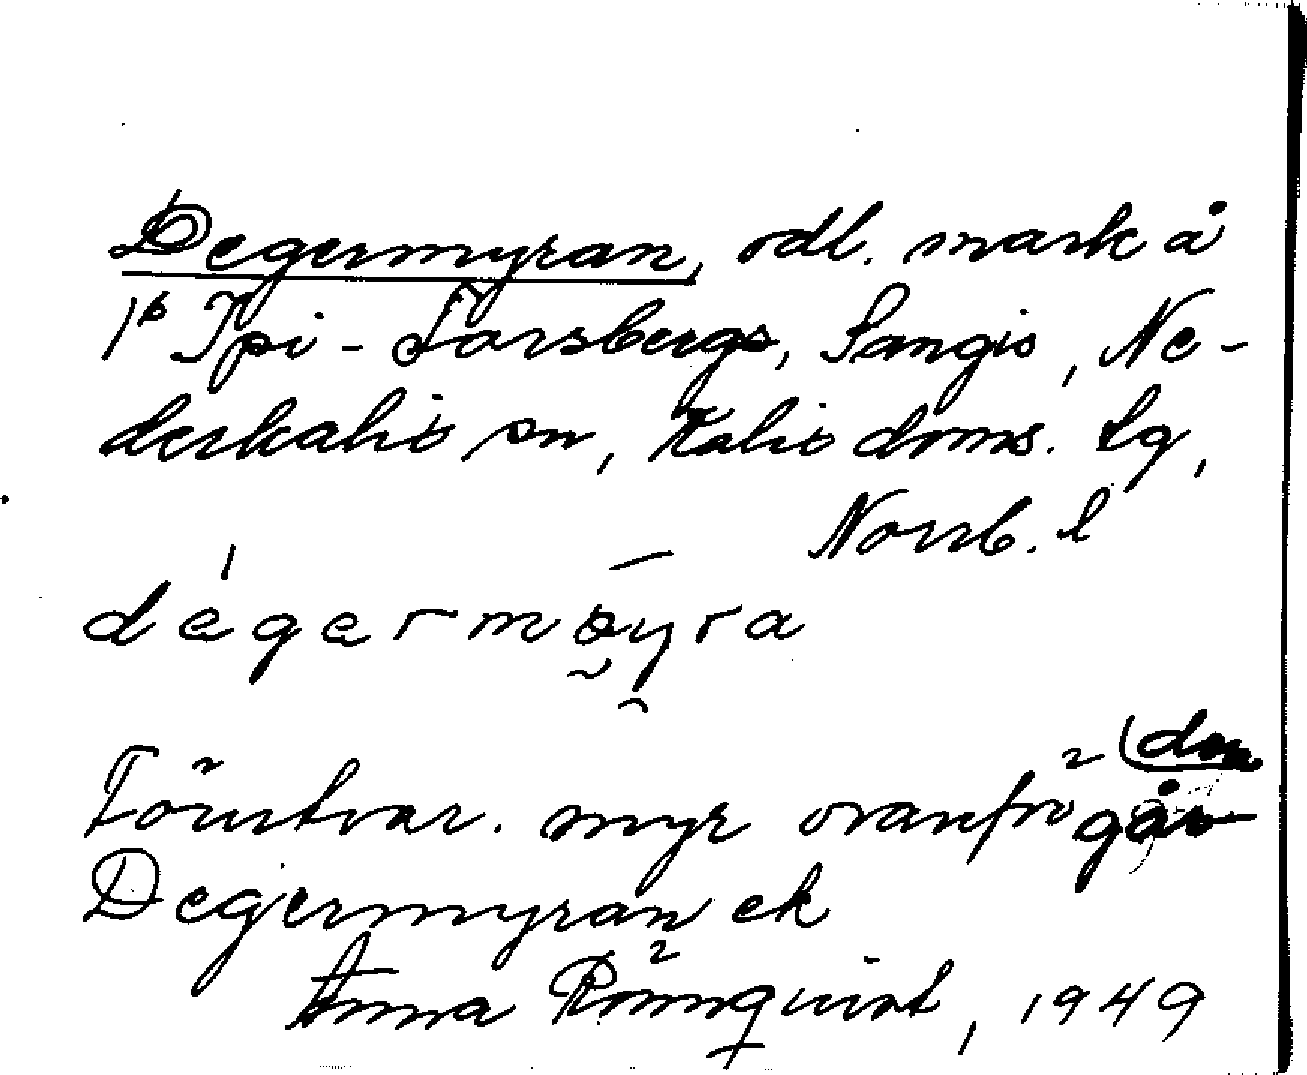 Degermyran, odl. mark å
1⁶ Ipi-Forsbergs, Sangis, Ne-
derkalis sn, Kalis doms. lg,
Norrb. l
dégermøyra
Förutvar. myr ovanför (den
Degermyran ek
Anna Rönnquist, 1949